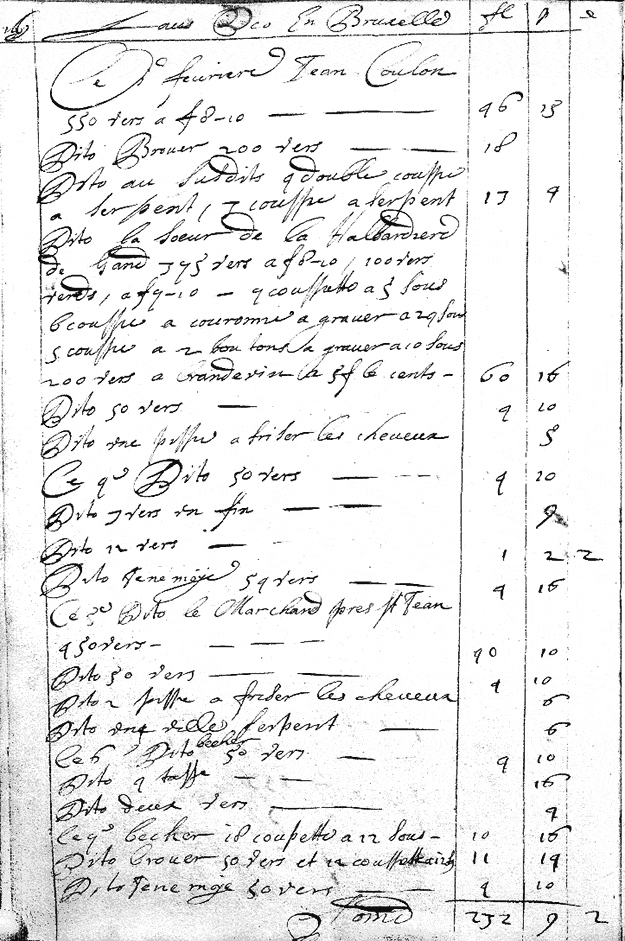 Laus Deo En Bruxelle fl p
Ce fevriere Jean Coulon
550 vers a f8-10 — — 46 15
Dito Brouer 200 vers — — 18
Dito au susdits 4 double couppe
a serpent, 7 couppe a serpent 13 4
Dito la soeur de la Halbardiere
de Gand 395 vers a f8-10, 100 vers
verds, a f9-10 — 4 couppette a 5 sous
6 couppe a couronne a graver a 24 sous
5 couppe a 2 boutons a graver a 10 sous
200 vers a brandevin a 5f le cents — 60 16
Dito 50 vers — 4 10
Dito une pippe a friser les cheveux 5
Ce 4e Dito 50 vers — — 4 10
Dito 7 vers en fin — — 9
Dito 12 vers — 1 2 2
Dito 54 vers — — 4 16
Ce 5e Dito le Marchand pres st Jean
450 vers — — — — 40 10
Dito 50 vers — — 4 10
Dito 2 pippe a friser les cheveux 6
Dito une serpent — 6
le 6e Dito becher 50 vers — 4 10
Dito 4 tasse — — 16
Dito deux vers — 4
le 9e becher 18 coupette a 12 sous — 10 16
Dito brouer 50 vers et 12 couppette a 12 11 14
Dito 50 vers — — 4 10
Somme 232 9 2